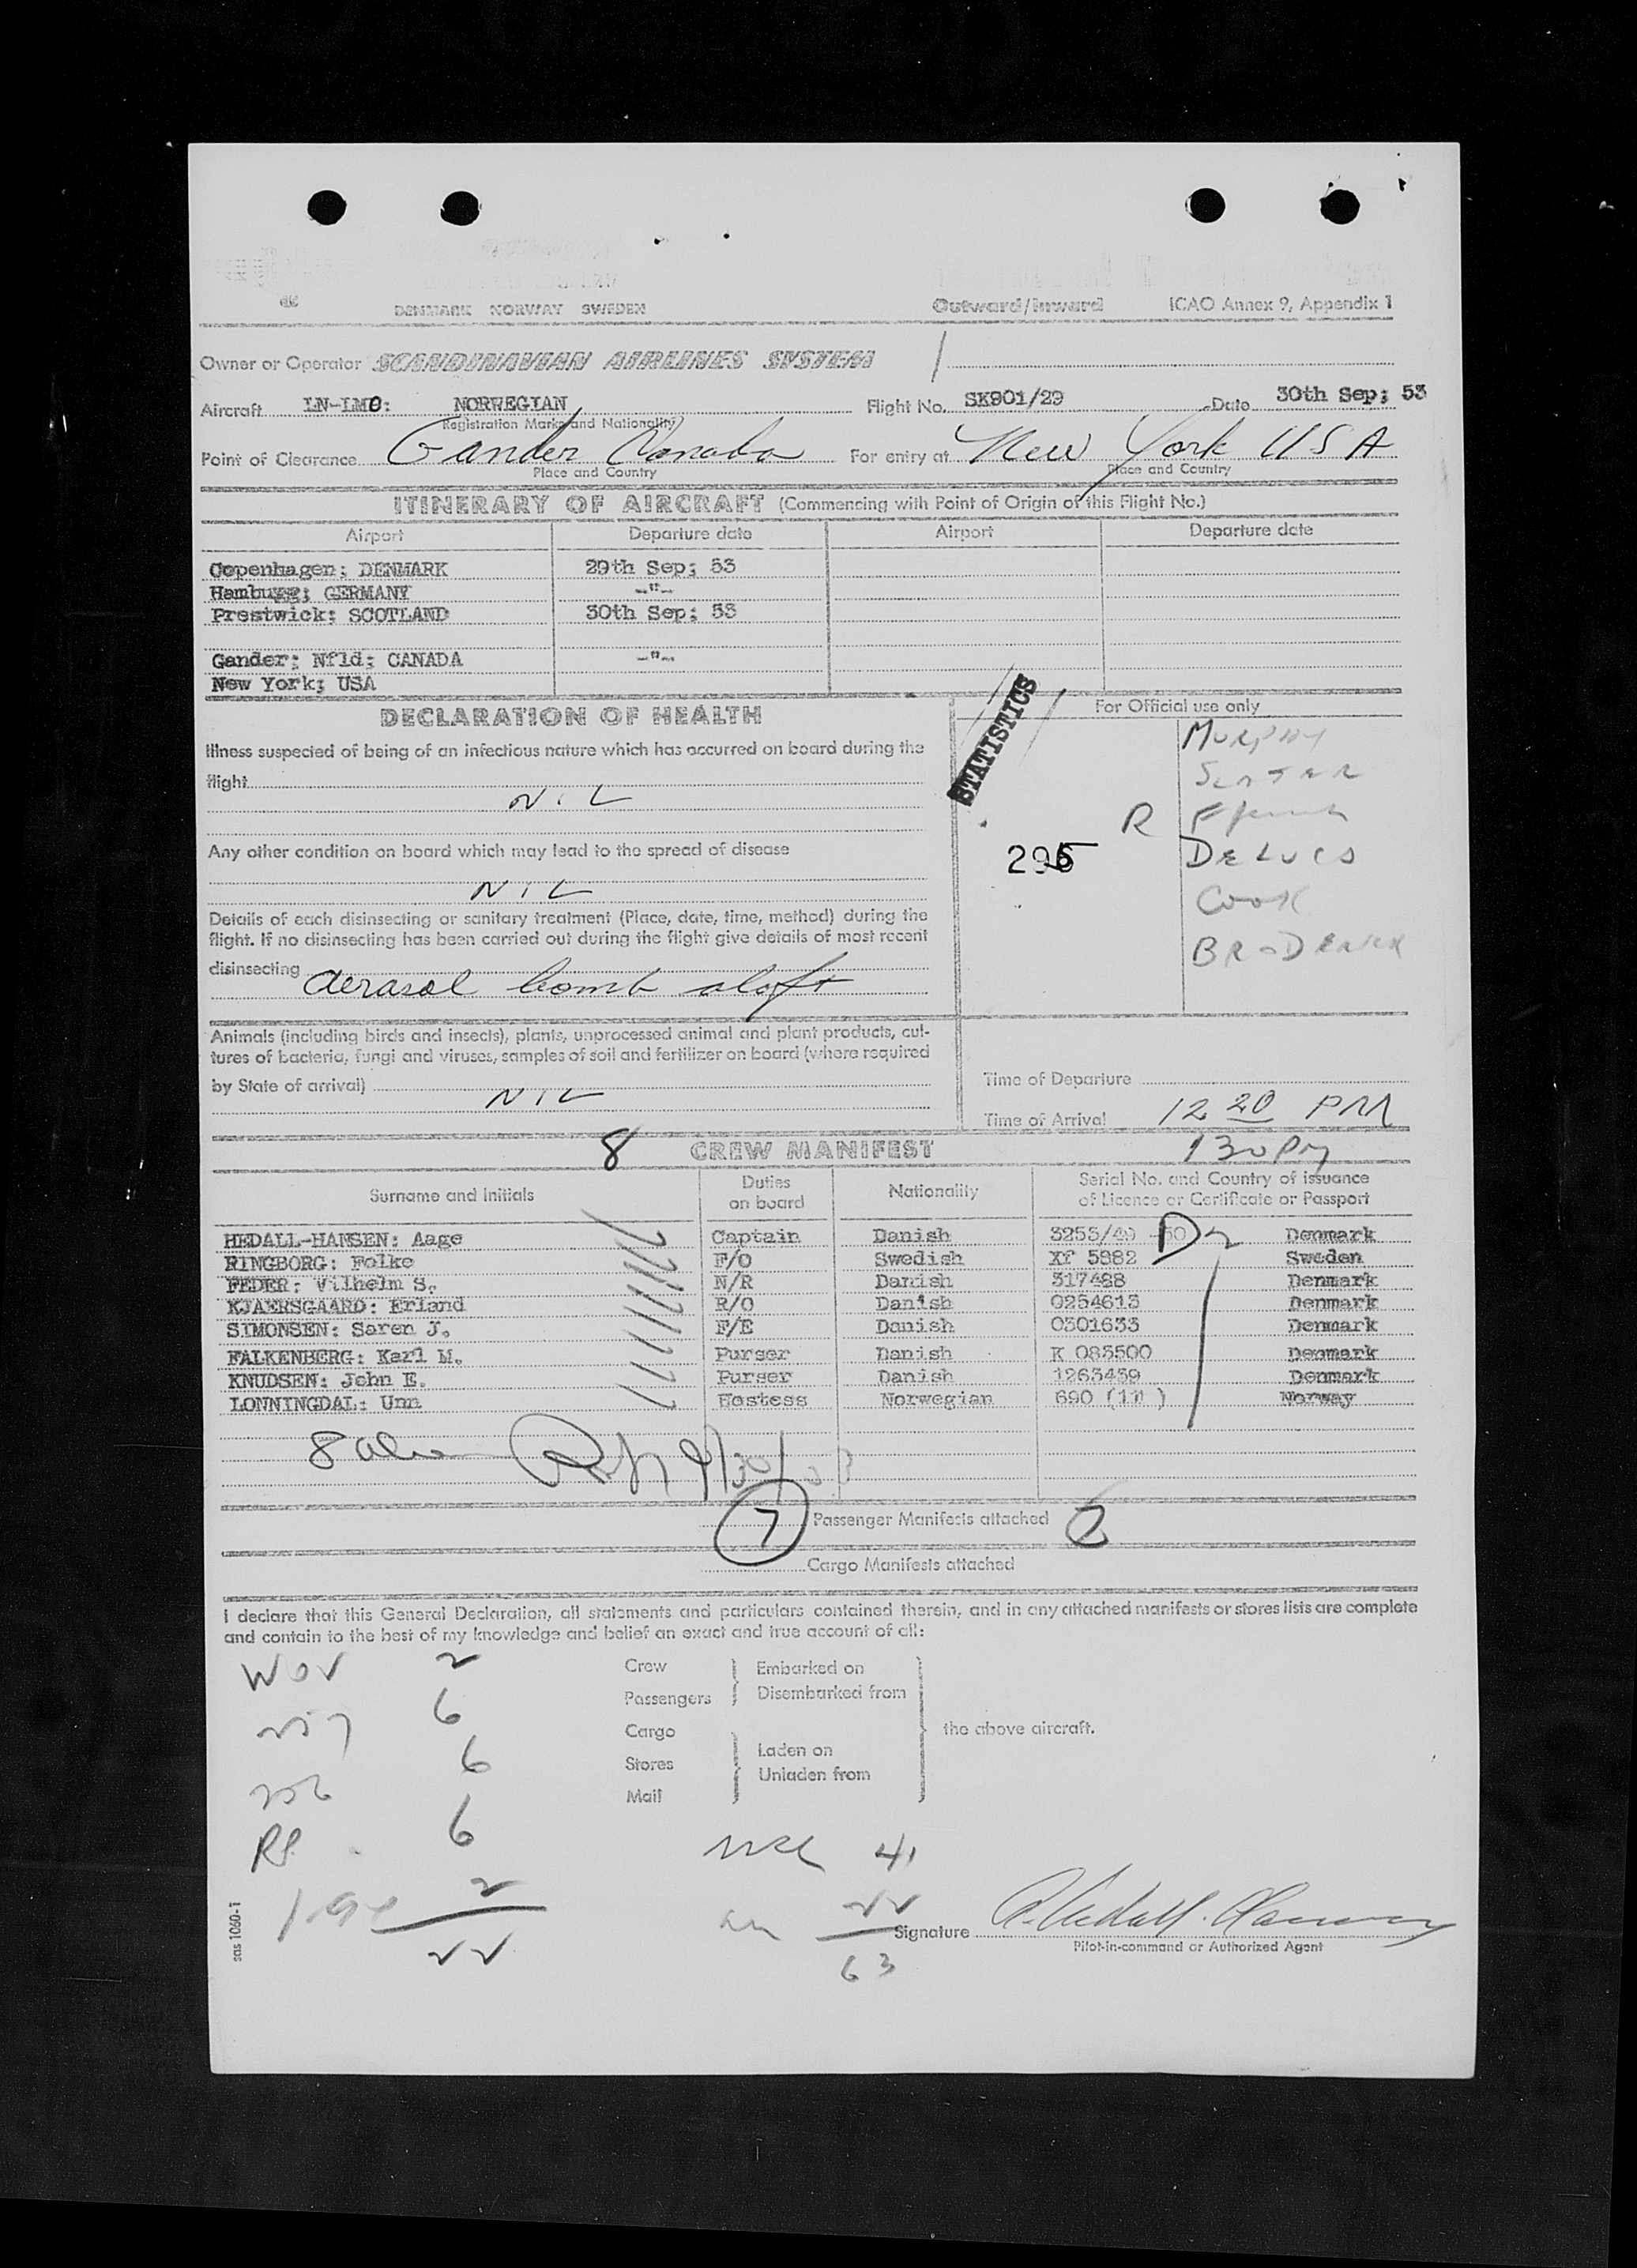 DENMARK NORWAY SWEDEN Outward/Inward ICAO Annex 9, Appendix 1
Owner or Operator SCANDINAVIAN AIRLINES SYSTEM
Aircraft LN-LMO: NORWEGIAN Flight No. SK901/29 Date 30th Sep; 53
Registration Marks and Nationality
Point of Clearance Gander Canada For entry at New York USA
Place and Country Place and Country
ITINERARY OF AIRCRAFT (Commencing with Point of Origin of this Flight No.)
Airport Departure date Airport Departure date
Copenhagen; DENMARK 29th Sep; 53
Hamburg; GERMANY -"-
Prestwick; SCOTLAND 30th Sep; 53
Gander; Nfld; CANADA -"-
New York; USA
DECLARATION OF HEALTH
Illness suspected of being of an infectious nature which has occurred on board during the
flight
NIL
Any other condition on board which may lead to the spread of disease
NIL
Details of each disinsecting or sanitary treatment (Place, date, time, method) during the
flight. If no disinsecting has been carried out during the flight give details of most recent
disinsecting Aerasol bomb aloft
Animals (including birds and insects), plants, unprocessed animal and plant products, cul-
tures of bacteria, fungi and viruses, samples of soil and fertilizer on board (where required
by State of arrival)
NIL
For Official use only
STATISTICS
MURPHY
R
295
DELUCA
COOK
BRODERICK
Time of Departure
Time of Arrival 12 20 PM
1 30 PM
8 CREW MANIFEST
Surname and Initials Duties on board Nationality Serial No. and Country of issuance of Licence or Certificate or Passport
HEDALL-HANSEN: Aage Captain Danish 3253/49 50 Denmark
RINGBORG: Folke F/O Swedish Xf 5982 Sweden
FEDER: Vilhelm S. N/R Danish 317488 Denmark
KJAERSGAARD: Erland R/O Danish 0254613 Denmark
SIMONSEN: Saren J. F/E Danish 0301633 Denmark
FALKENBERG: Karl M. Purser Danish K 083500 Denmark
KNUDSEN: John E. Purser Danish 1263459 Denmark
LONNINGDAL: Unn Hostess Norwegian 690 (1M ) Norway
8
9/30/53
7 Passenger Manifests attached
Cargo Manifests attached
I declare that this General Declaration, all statements and particulars contained therein, and in any attached manifests or stores lists are complete
and contain to the best of my knowledge and belief an exact and true account of all:
WOV 2
6
6
6
2
22
Crew
Passengers
Cargo
Stores
Mail
Embarked on
Disembarked from
Laden on
Unladen from
the above aircraft.
USC 41
22
63
Signature A. Hedall-Hansen
Pilot-in-command or Authorized Agent
sas 1060-1